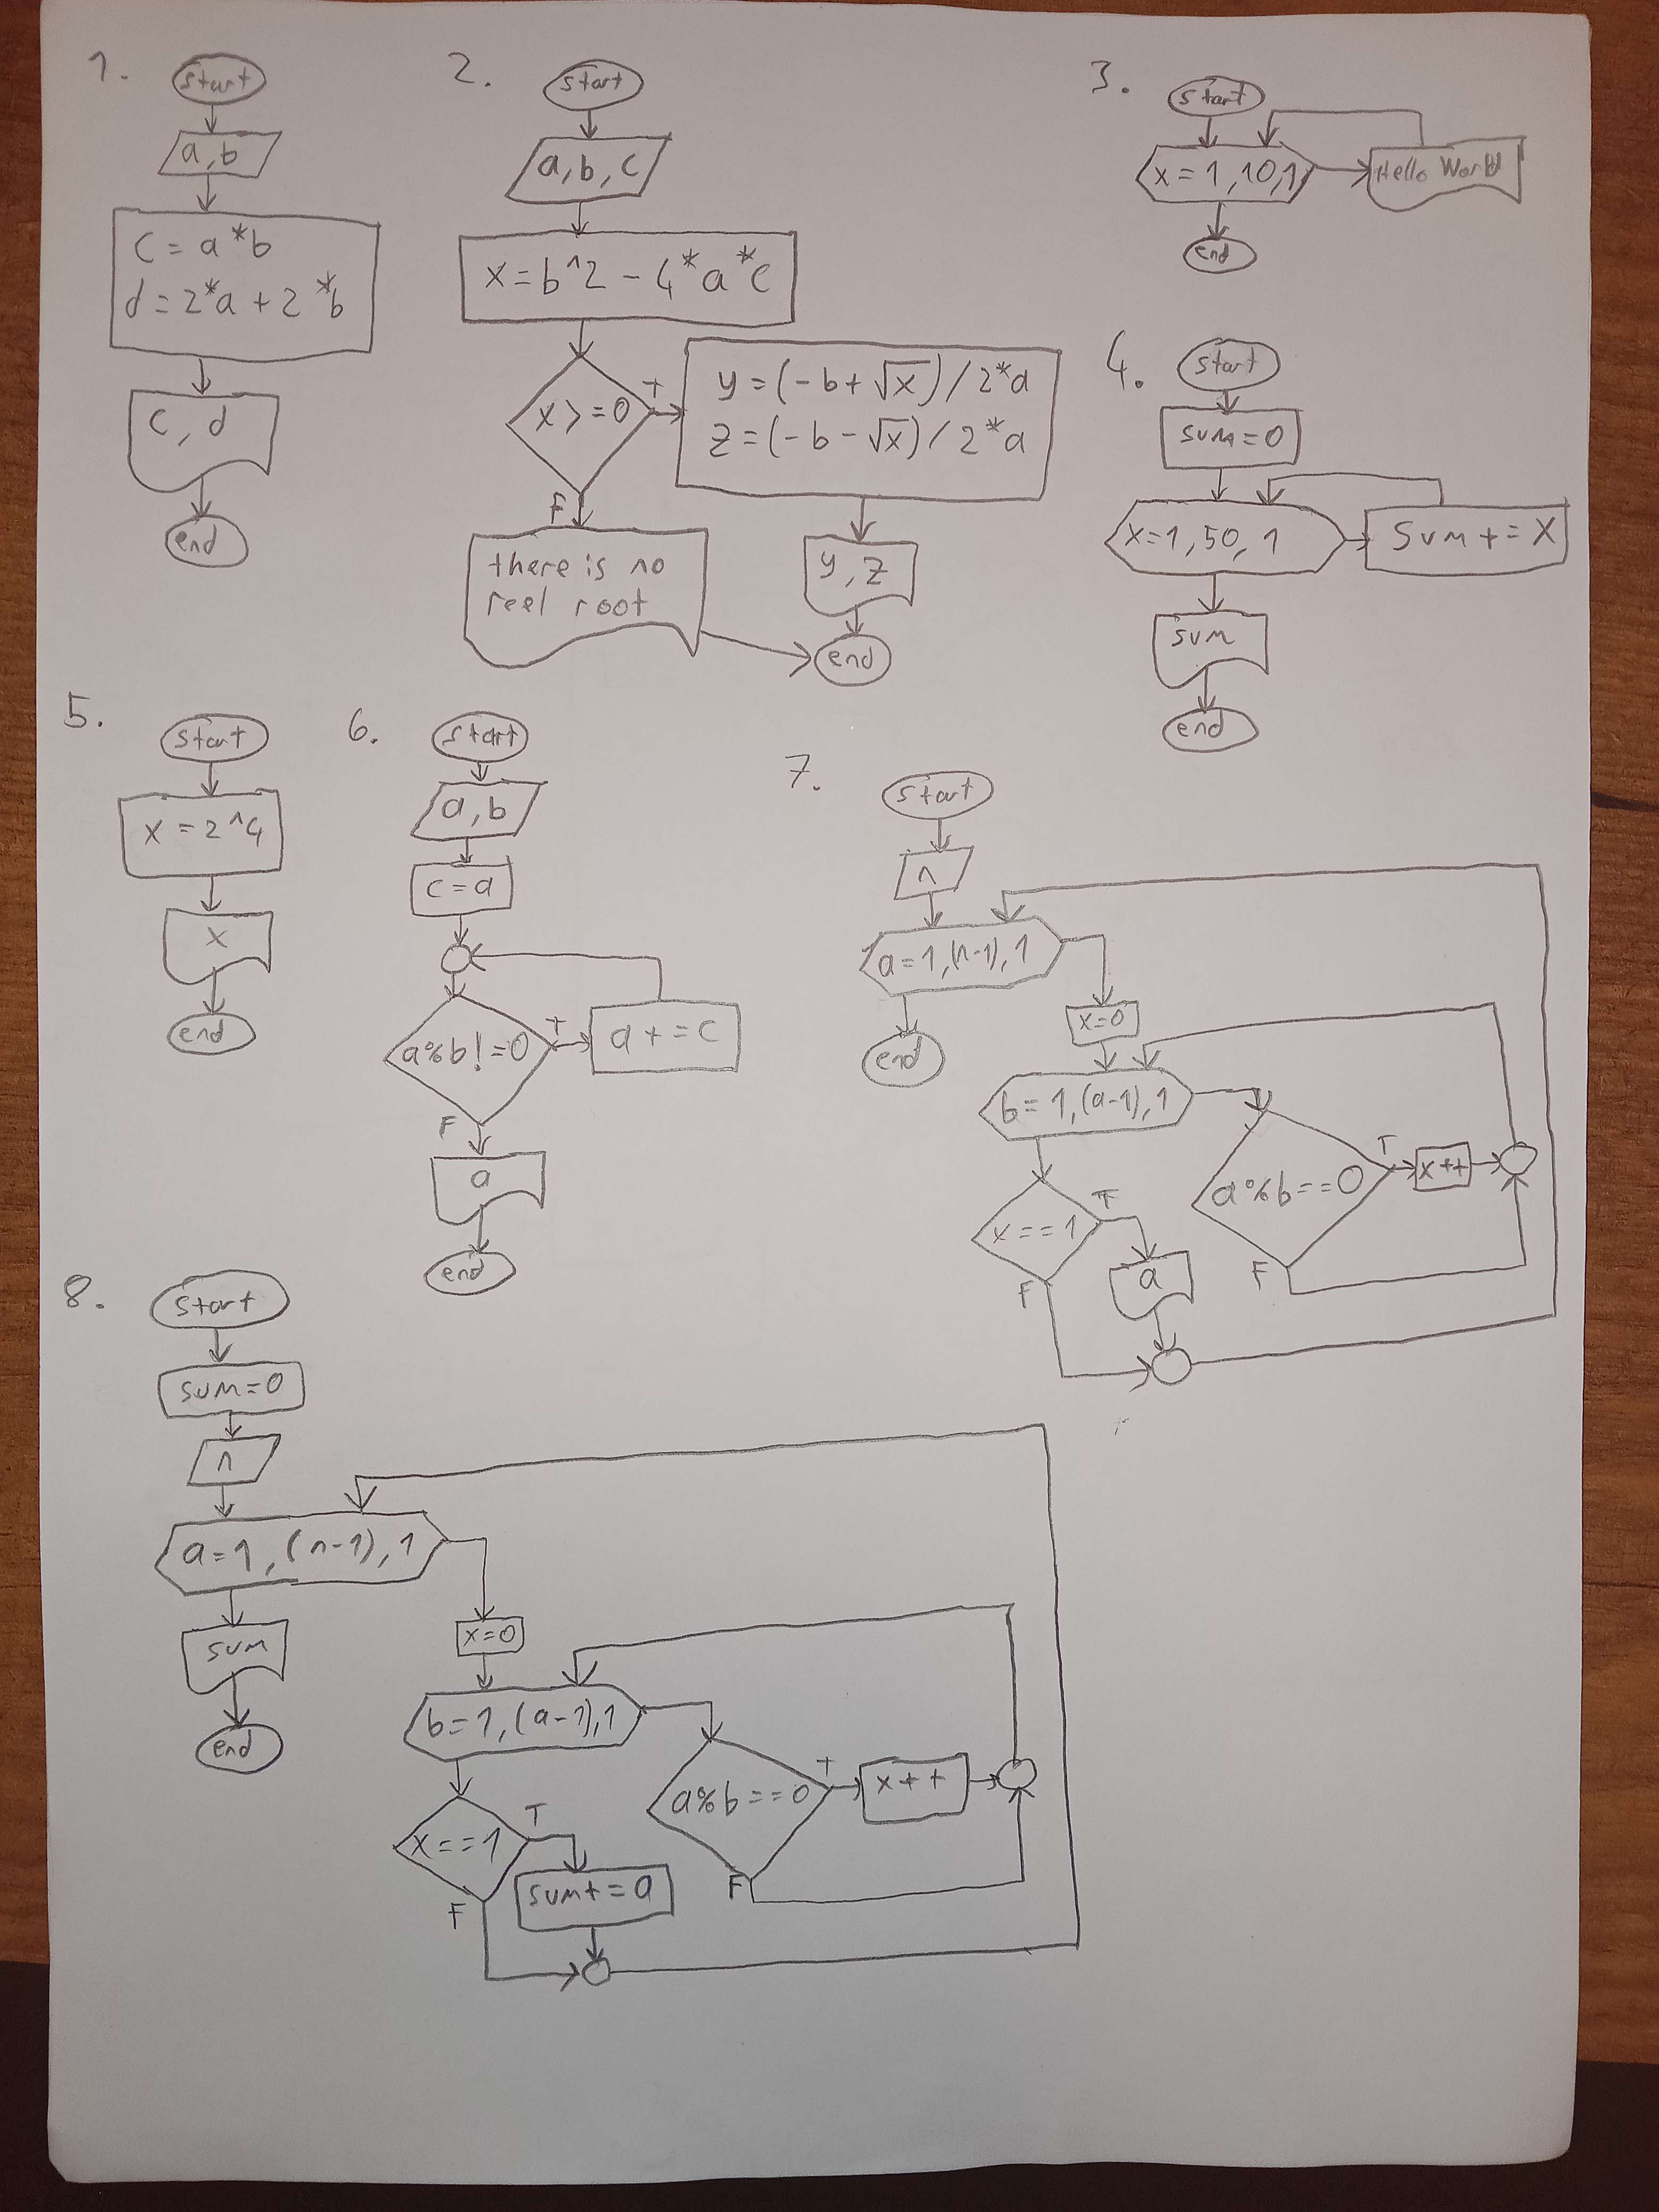 1.
start
a,b
c = a*b
d = 2*a + 2*b
c, d
end
2.
start
a, b, c
x = b^2 - 4*a*c
x >= 0
T
y = (-b + √x) / 2*a
z = (-b - √x) / 2*a
F
there is no
reel root
y, z
end
3.
start
x = 1,10,1
Hello World
end
4.
start
sum = 0
x=1,50,1
sum += x
sum
end
5.
start
x = 2^4
x
end
6.
start
a, b
c = a
a%b!=0
T
a += c
F
a
end
7.
start
n
a=1,(n-1),1
end
x=0
b=1,(a-1),1
a%b==0
T
x++
F
x==1
T
a
F
8.
start
sum=0
n
a=1,(n-1),1
sum
end
x=0
b=1,(a-1),1
a%b==0
T
x++
F
x==1
T
sum+=a
F